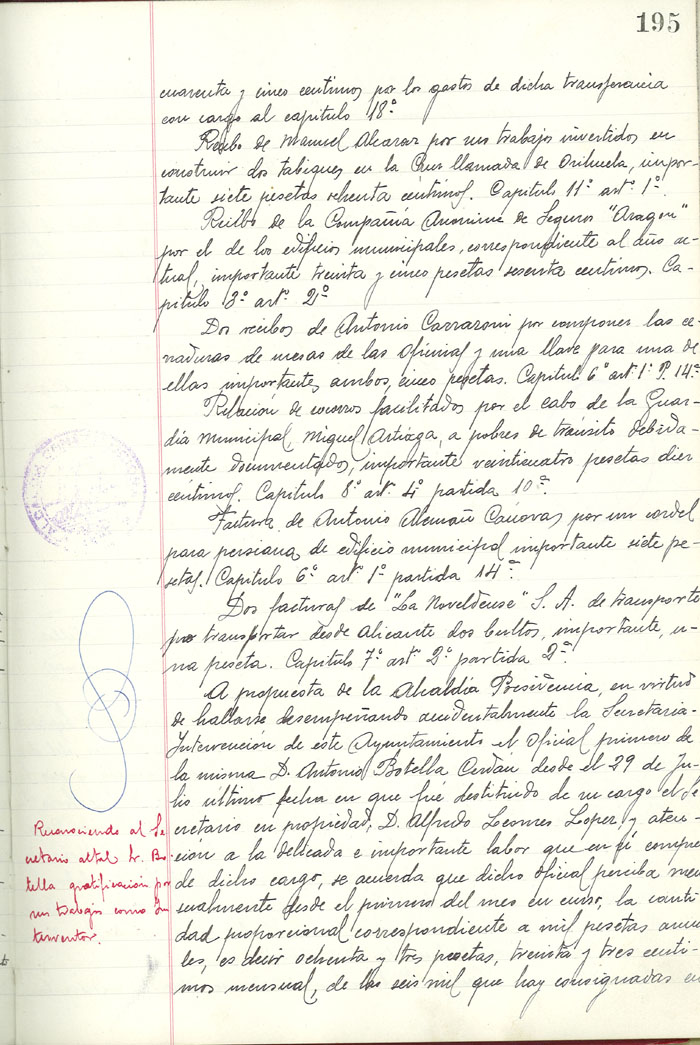 195
cuarenta y cinco centimos por los gastos de dicha transferencia
con cargo al capitulo 18º
Recibo de Manuel Alcaraz por sus trabajos invertidos en
construir dos tabiques en la Cruz llamada de Orihuela, impor-
tante siete pesetas ochenta centimos. Capitulo 11º artº 1º
Recibo de la Compañia Anonima de Seguros "Aragon"
por el de los edificios municipales, correspondiente al año ac-
tual, importante treinta y cinco pesetas sesenta centimos. Ca-
pitulo 3º artº 2º
Dos recibos de Antonio Carrazoni por componer las ce-
rraduras de mesas de las Oficinas y una llave para una de
ellas importantes ambos, cinco pesetas. Capitulo 6º artº 1º P. 14ª
Relación de socorros facilitados por el cabo de la Guar-
dia Municipal, Miguel Artiaga, a pobres de transito debida-
mente documentados, importante veinticuatro pesetas diez
centimos. Capitulo 8º artº 4º partida 10ª
Factura de Antonio Alemañ Cánovas por un cordel
para persiana de edificio municipal importante siete pe-
setas. Capitulo 6º artº 1º partida 14ª
Dos facturas de "La Noveldense" S. A. de transporte
por transportar desde Alicante dos bultos, importante, u-
na peseta. Capitulo 7º artº 2º partida 2ª
A propuesta de la Alcaldía Presidencia, en virtud
de hallarse desempeñando accidentalmente la Secretaria-
Intervención de este Ayuntamiento el Oficial primero de
la misma D. Antonio Botella Cerdan desde el 29 de Ju-
lio último fecha en que fué destituido de su cargo el Se
cretario en propiedad, D. Alfredo Lopez y aten-
ción a la delicada e importante labor que en sí compren
de dicho cargo, se acuerda que dicho Oficial perciba men
sualmente desde el primero del mes en curso, la canti-
dad proporcional correspondiente a mil pesetas anua
les, es decir ochenta y tres pesetas, treinta y tres centi-
mos mensual, de las seis mil que hay consignadas en
Reconociendo al Se
cretario acctal Sr. Bo
tella gratificación por
sus trabajos como In
terventor.